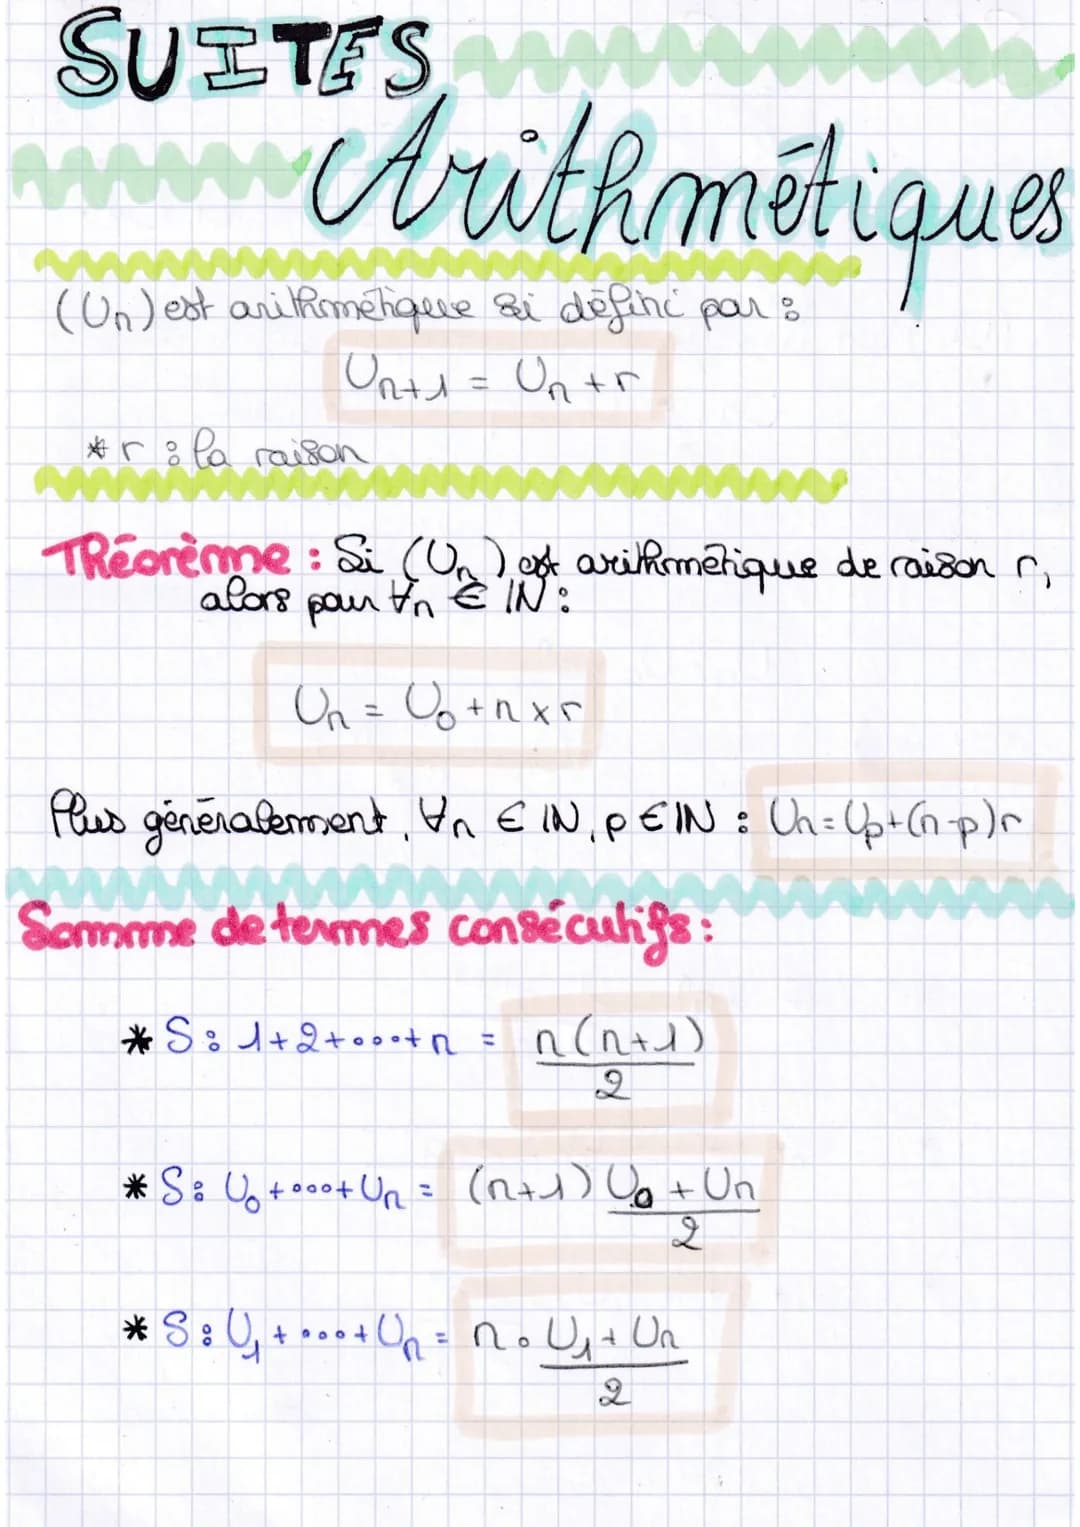 SUITES
Arithmétiques
(Un) est arithmétique si défini par :
Un+1 = Un + r
* r : la raison
Théorème : Si (Un) est arithmétique de raison r,
alors pour ∀n ∈ IN :
Un = U0 + n x r
Plus généralement, ∀n ∈ IN, p ∈ IN : Un = Up + (n-p)r
Somme de termes consécutifs :
* S : 1+2+...+n = n(n+1)/2
* S : U0 +...+ Un = (n+1) U0 + Un/2
* S : U1 +...+ Un = n . U1 + Un/2